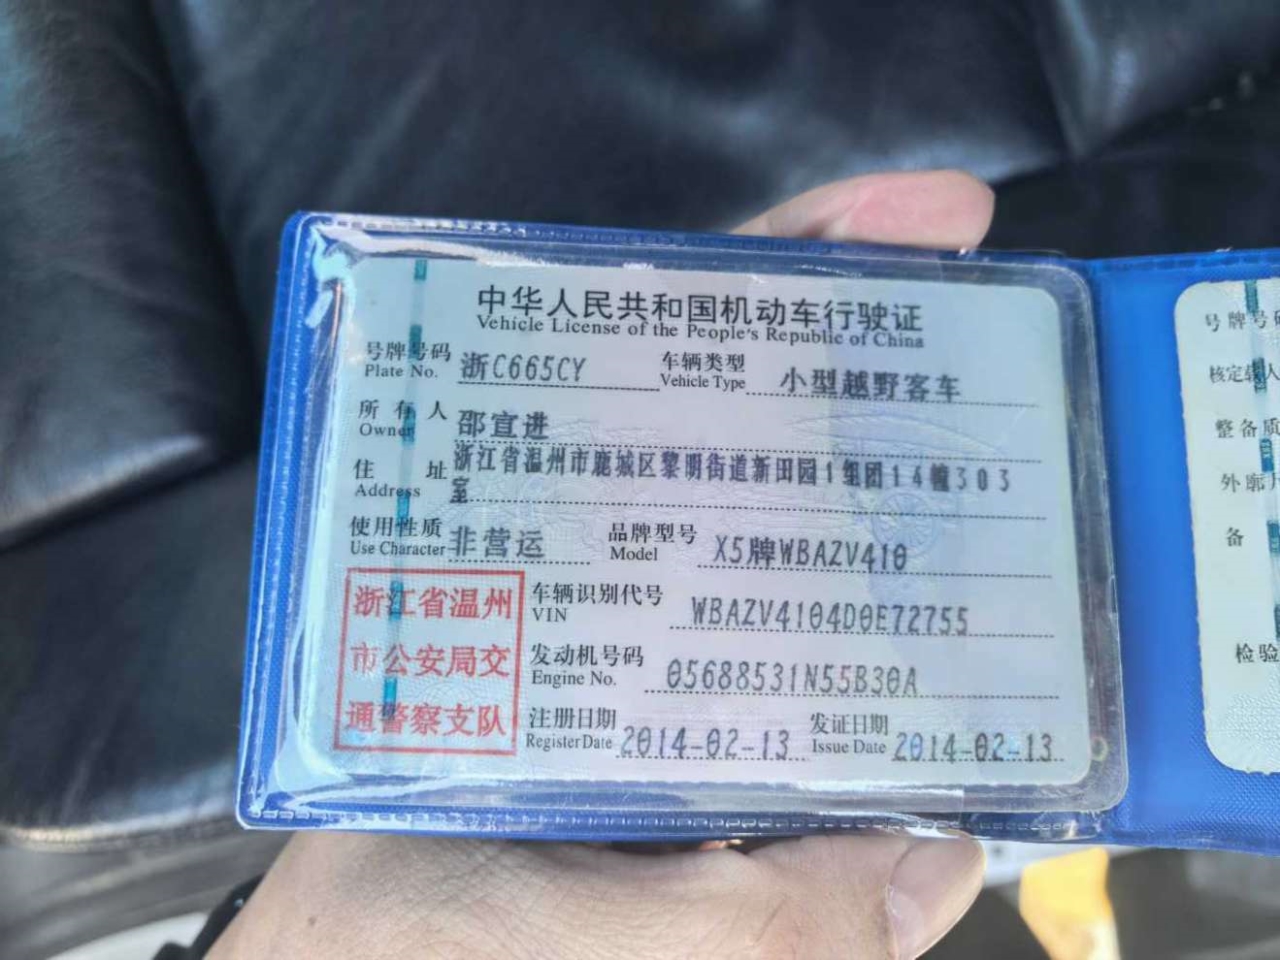 中华人民共和国机动车行驶证
Vehicle License of the People's Republic of China
号牌号码 浙C665CY 车辆类型 小型越野客车
Plate No. Vehicle Type
所有人 邵宣进
Owner
住址 浙江省温州市鹿城区黎明街道新田园1组团14幢303
Address 室
使用性质 非营运 品牌型号 X5牌WBAZV410
Use Character Model
浙江省温州
市公安局交
通警察支队
车辆识别代号 WBAZV4104D0E72755
VIN
发动机号码 05688531N55B30A
Engine No.
注册日期 2014-02-13 发证日期 2014-02-13
Register Date Issue Date
号牌号码
核定载人
整备质
外廓
备
检验